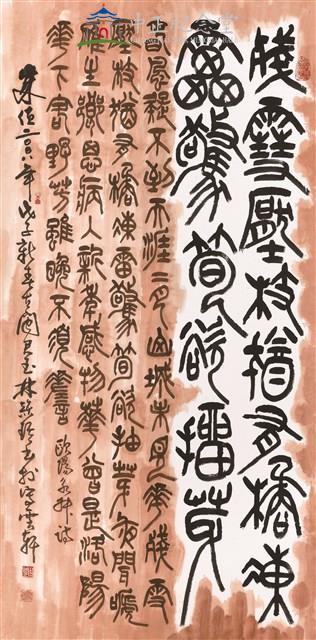 殘雪壓枝猶有橘凍
雷驚筍欲抽芽
春風疑不到天涯二月山城未見花殘雪
壓枝猶有橘凍雷驚筍欲抽芽夜聞歸
雁生鄉思病入新年感物華曾是洛陽
花下客野芳雖晚不須嗟 歐陽永叔詩
年戊子新春古閩君玉林書於雲軒